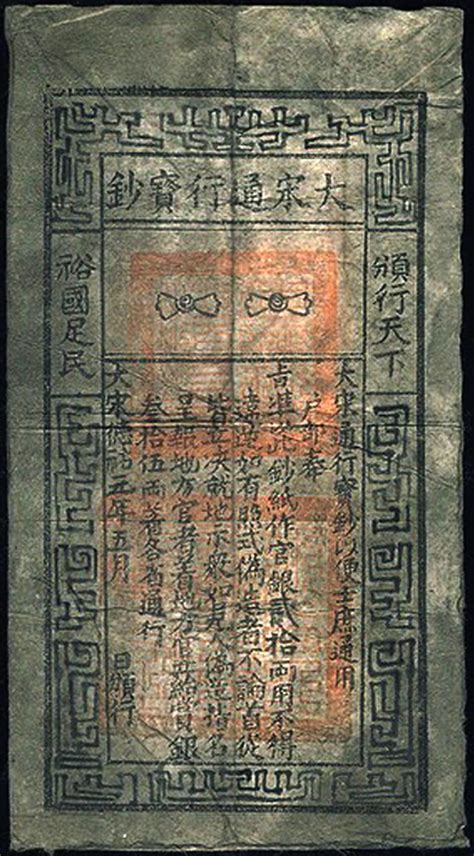 大宋通行寶鈔
頒行天下
裕國足民
大宋通行寶鈔以便士庶通用
户部奉
旨準此鈔紙作官銀貳拾兩用不得
違 如有照式偽造者不論首從
皆立决就地示衆如 人偽造指名
呈報地方官者着地方官立給賞銀
叁拾伍兩着各省通行
大宋德祐五年五月 日頒行